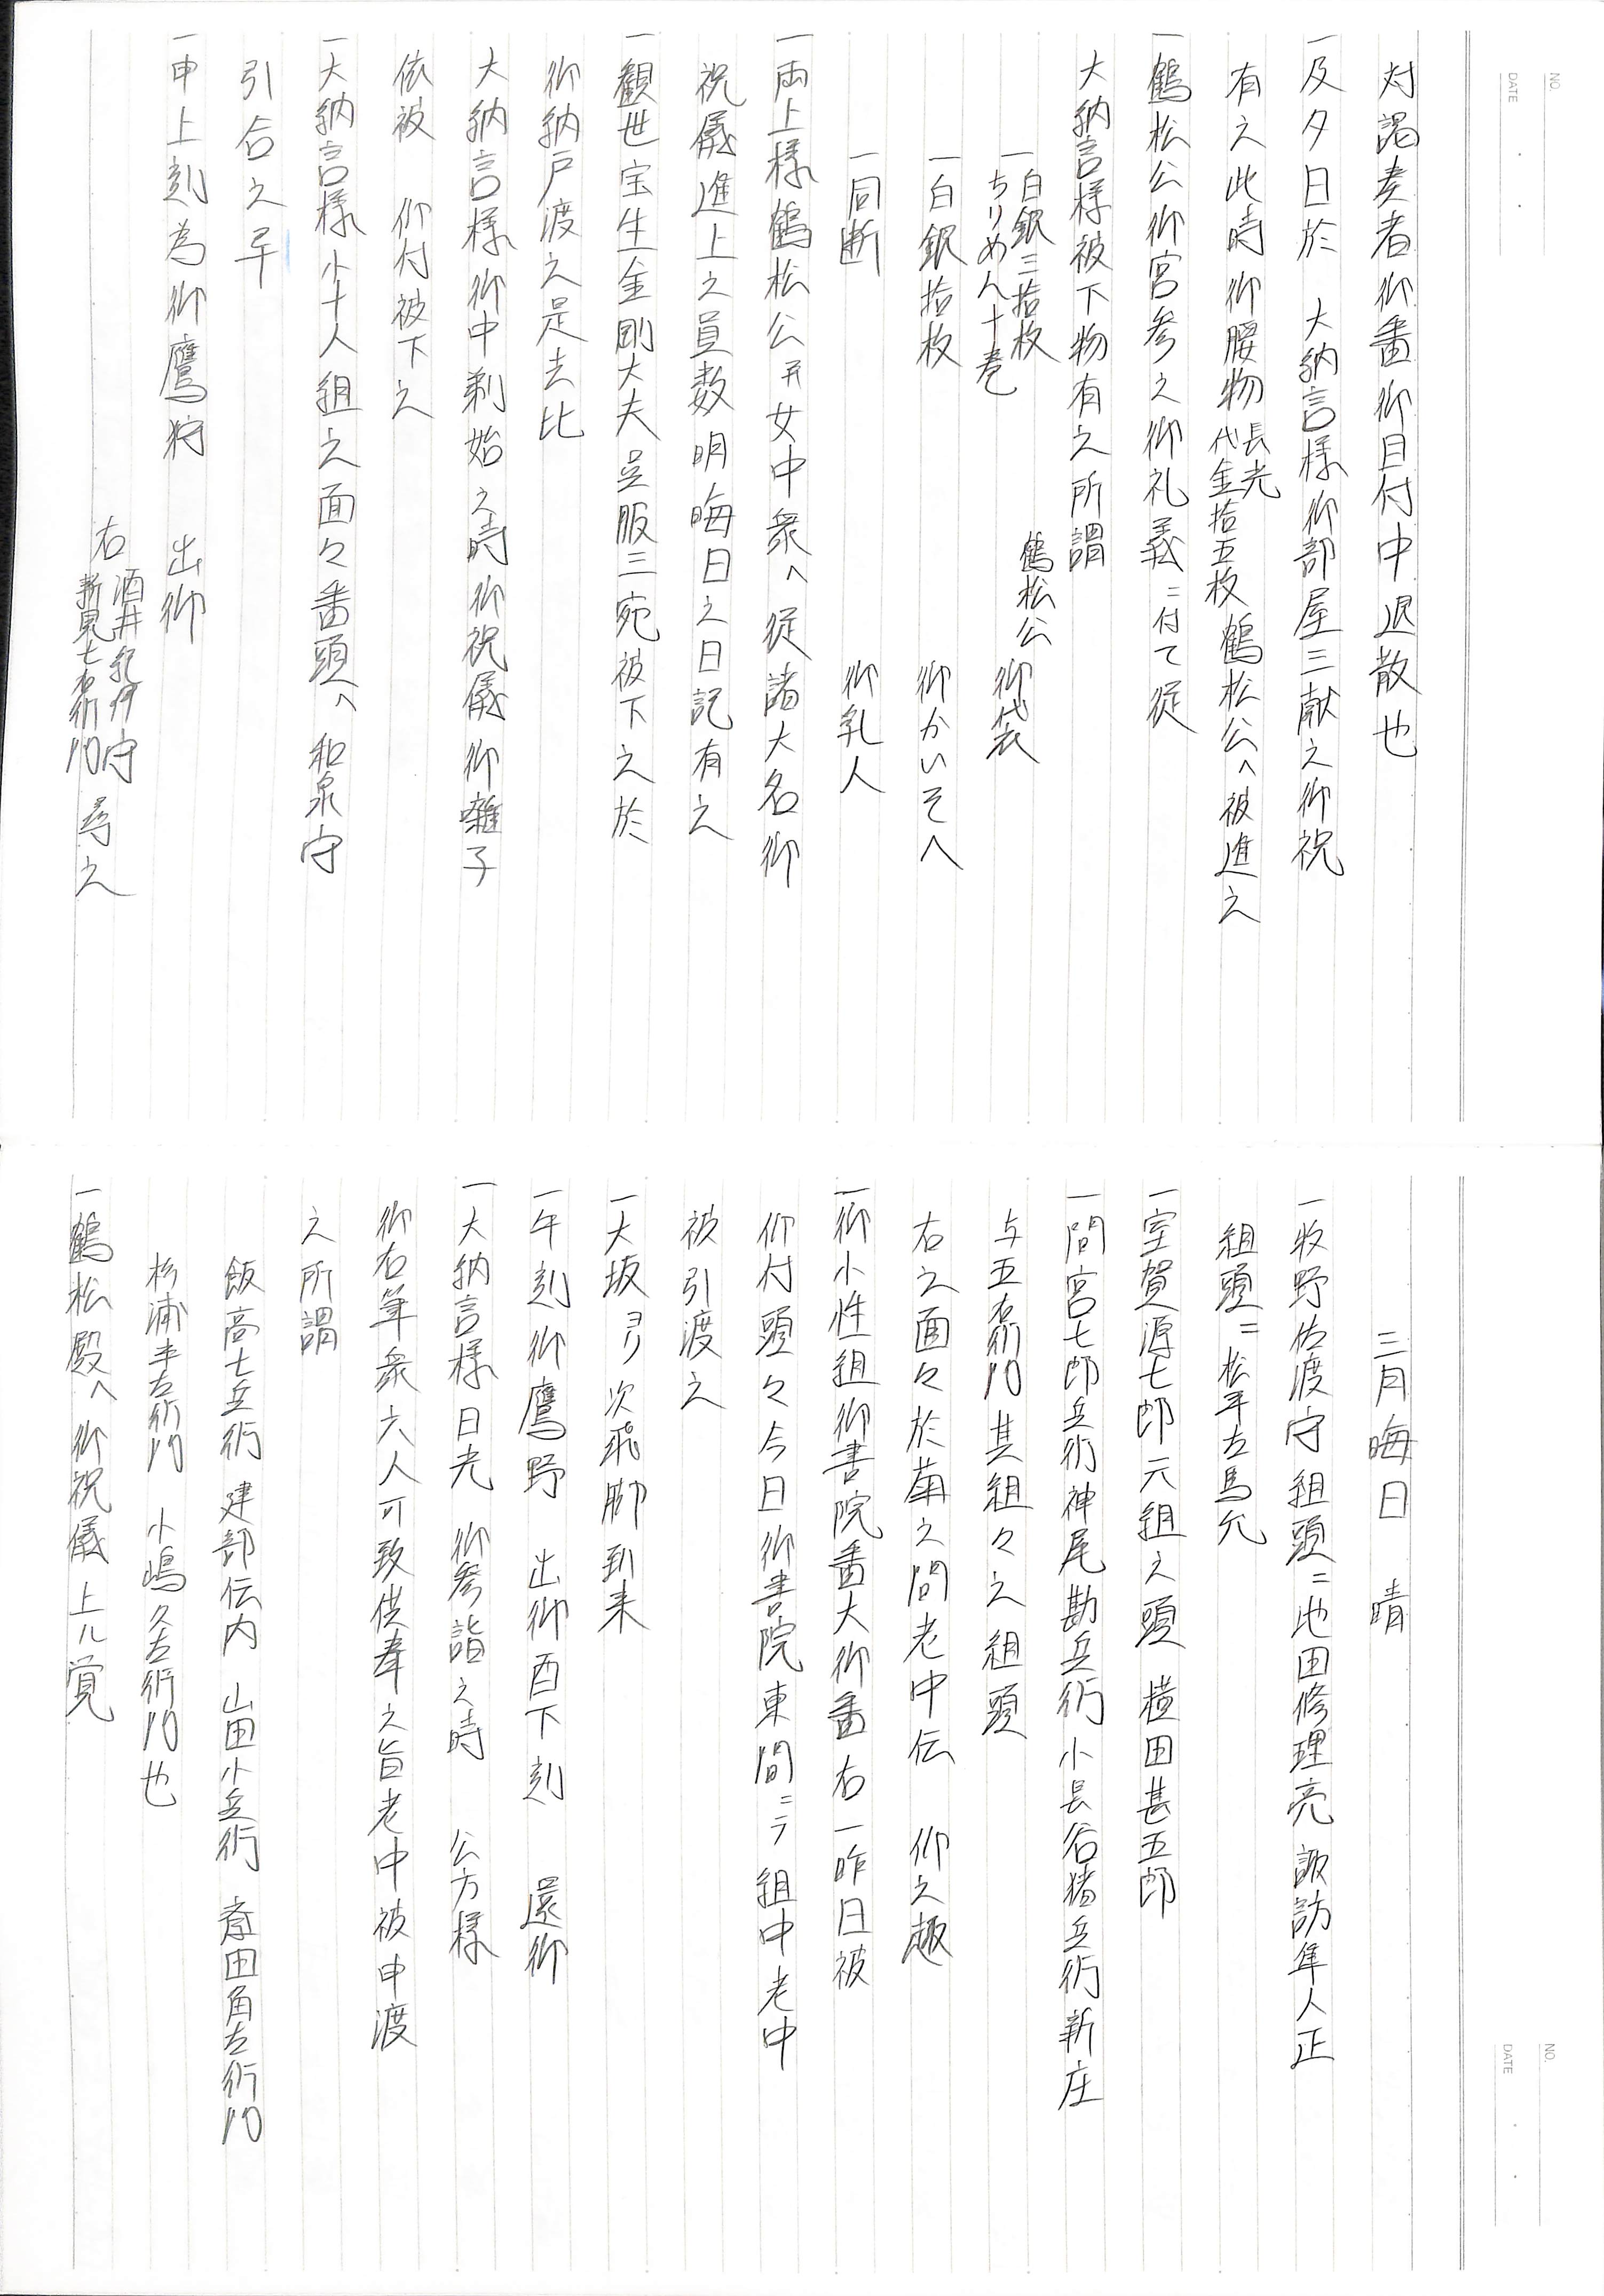 NO.
DATE
対謁奏者御番御目付中退散也
一及夕日於 大納言様御部屋三献之御祝
有之此時御腰物長光代金拾五枚鶴松公へ被進之
一鶴松公御宮参之御礼義ニ付て従
大納言様被下物有之所謂
一白銀三拾枚 鶴松公
一ちりめん十巻 御袋
一白銀拾枚 御かいそへ
一同断 御乳人
一両上様鶴松公并女中衆へ従諸大名御
祝儀進上之員数明晦日之日記有之
一観世宝生金剛大夫呉服三宛被下之於
御納戸渡之是去比
大納言様御中剃始之時御祝儀御囃子
依被 仰付被下之
一大納言様小十人組之面々番頭へ和泉守
引合之
一申上刻為御鷹狩 出御
右 酒井紀伊守
新見七右衛門 尋之
NO.
DATE
三月晦日 晴
一牧野佐渡守組頭ニ池田修理亮 諏訪隼人正
組頭ニ松平左馬允
一室賀源七郎元組之頭 横田甚五郎
一間宮七郎兵衛神尾勘兵衛 小長谷猪兵衛 新庄
与五右衛門其組々之組頭
右之面々於菊之間老中伝 仰之趣
一御小性組御書院番大御番右一昨日被
仰付頭々今日御書院東間ニテ組中老中
被引渡之
一大坂ヨリ次飛脚到来
一午刻御鷹野 出御酉下刻 還御
一大納言様日光 御参詣之時 公方様
御右筆衆六人可致供奉之旨老中被申渡
之所謂
飯高七兵衛 建部伝内 山田小兵衛 斎田角左衛門
杉浦半左衛門 小嶋久左衛門也
一鶴松殿へ御祝儀上ル覚